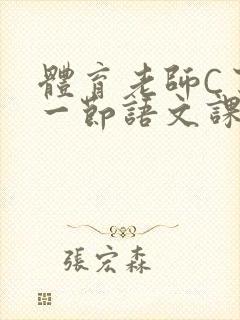 體育老師C
一節語文課
張宏森